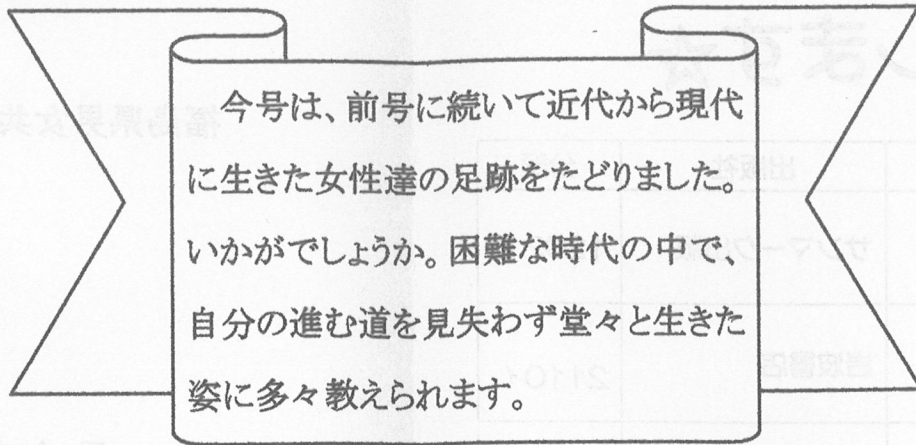 今号は、前号に続いて近代から現代
に生きた女性達の足跡をたどりました。
いかがでしょうか。困難な時代の中で、
自分の進む道を見失わず堂々と生きた
姿に多々教えられます。